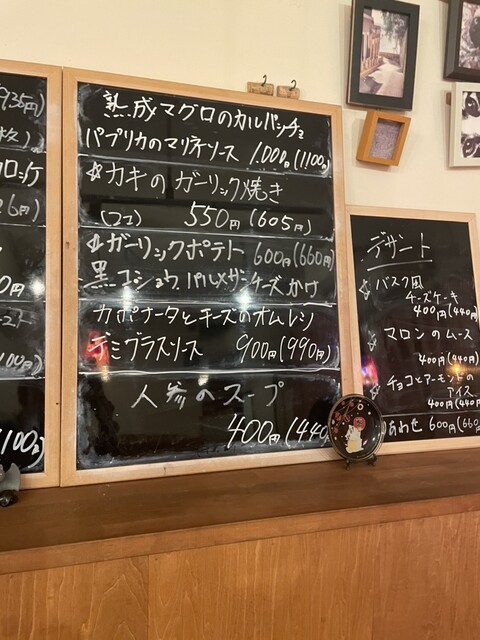 935円)
ロッケ
熟成マグロのカルパッチョ
パプリカのマリネソース 1,000円(1,100)
カキのガーリック焼き
(1コ) 550円(605円)
ガーリックポテト 600円(660円)
黒コショウ、パルメザンチーズかけ
カポナータとチーズのオムレツ
デミグラスソース 900円(990円)
人参のスープ
400円(440
デザート
☆バスク風
チーズケーキ
400円(440円)
☆マロンのムース
400円(440円)
☆チョコとアーモンドの
アイス
400円(440円
あわせ 600円(660